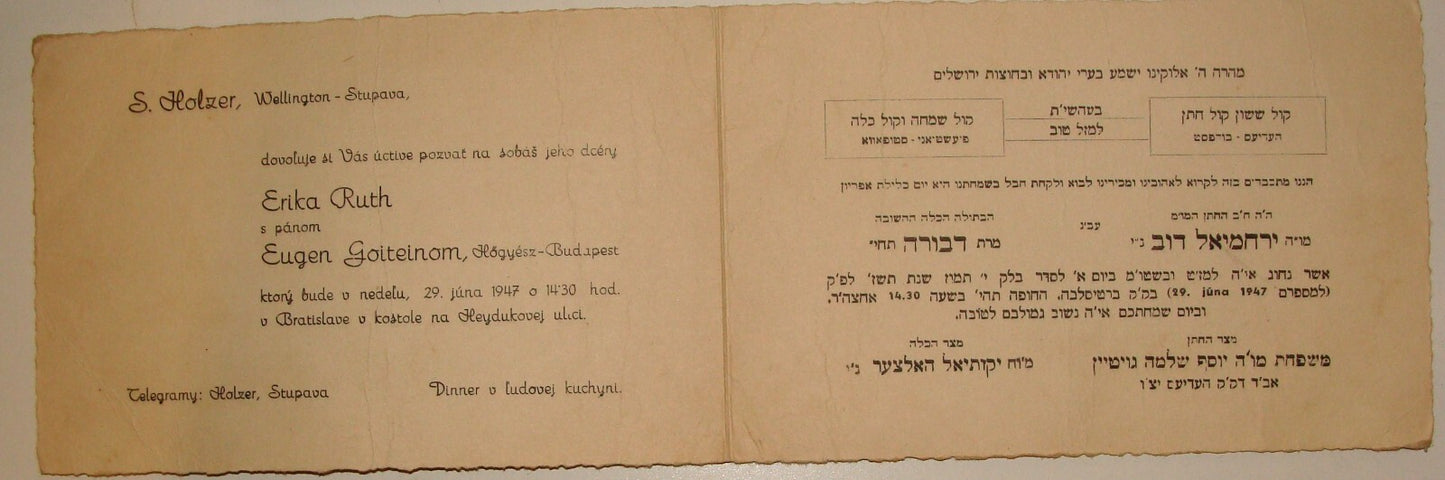 S. Holzer, Wellington - Stupava,
dovoľuje si Vás úctive pozvať na sobáš jeho dcéry
Erika Ruth
s pánom
Eugen Goiteinom, Hőgyész-Budapest
ktorý bude v nedeľu, 29. júna 1947 o 14'30 hod.
v Bratislave v kostole na Heydukovej ulici.
Telegramy: Holzer, Stupava
Dinner v ľudovej kuchyni.
מהרה ה' אלוקינו ישמע בערי יהודא ובחוצות ירושלים
קול ששון קול חתן
העדיעס - בודפסט
בטהשי"ת
למזל טוב
קול שמחה וקול כלה
פיעשטיאני - סטופאווא
הננו מתכבדים בזה לקרוא לאהובינו ומכירינו לבוא ולקחת חבל בשמחתנו היא יום כלילת אפריון
ה"ה ח"ב החתן המו"מ
מו"ה ירחמיאל דוב נ"י
עב"ג
הבתולה הכלה החשובה
מרת דבורה תחי'
אשר נחוג אי"ה למז"ט ובשטו"מ ביום א' לסדר בלק י' תמוז שנת תש"ז לפ"ק
(למספרם 29. júna 1947) בק"ק ברטיסלבה. החופה תהי' בשעה 14.30 אחצה"ר.
וביום שמחתכם אי"ה נשוב גמולכם לטובה.
מצד החתן
משפחת מו"ה יוסף שלמה גויטיין
אב"ד דק"ק העדיעס יצ"ו
מצד הכלה
מו"ח יקותיאל האלצער נ"י